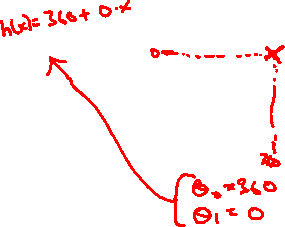 h(x) = 360 + 0·x
0
θ₀ = 360
θ₁ = 0